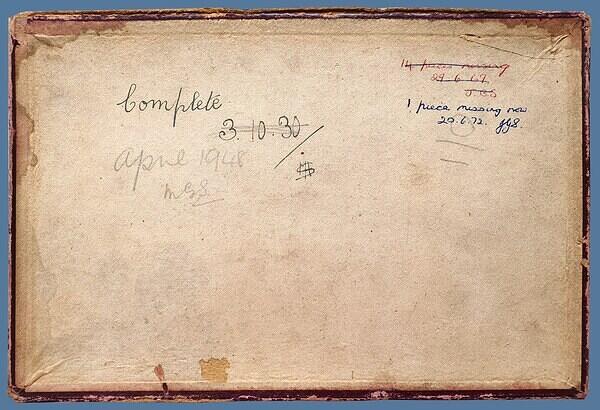 Complete
3.10.30
April 1948
MGS
14 pieces missing
29.6.67
JGS
1 piece missing now
29.6.72. JGS.